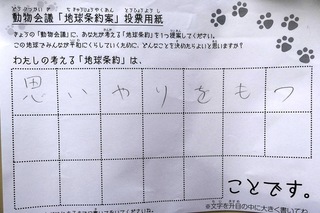 動物会議「地球条約案」投票用紙
きょうの「動物会議」に、あなたが考える「地球条約」を1つ提案してください。
この地球でみんなが平和にくらしていくために、どんなことを決めたらよいと思いますか?
わたしの考える「地球条約」は、
思いやりをもつ
ことです。
※文字を升目の中に大きく書いてね